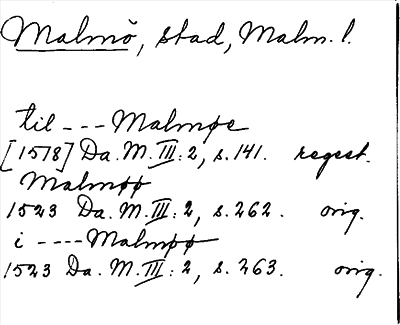 Malmö, stad, Malm. l.
til --- Malmøe
[1518] Da. M. III: 2, s. 141. regest.
Malmøø
1523 Da. M. III: 2, s. 262. orig.
i ---- Malmøø
1523 Da. M. III: 2, s. 263. orig.